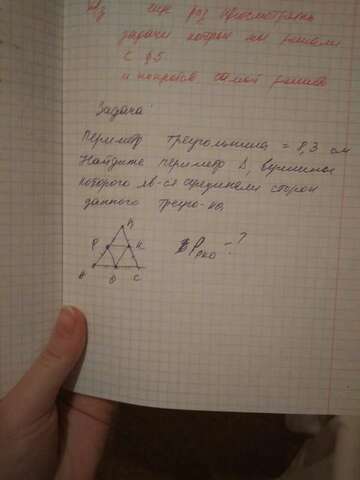 ещё раз просмотреть
задачи которые мы решали
с §5
и попробов самой решить
Задача:
Периметр треугольника = 8,3 см
Найдите периметр Δ, вершины
которого яв-ся серединами сторон
данного треуг-ка
P K
A O C
P ОКО - ?